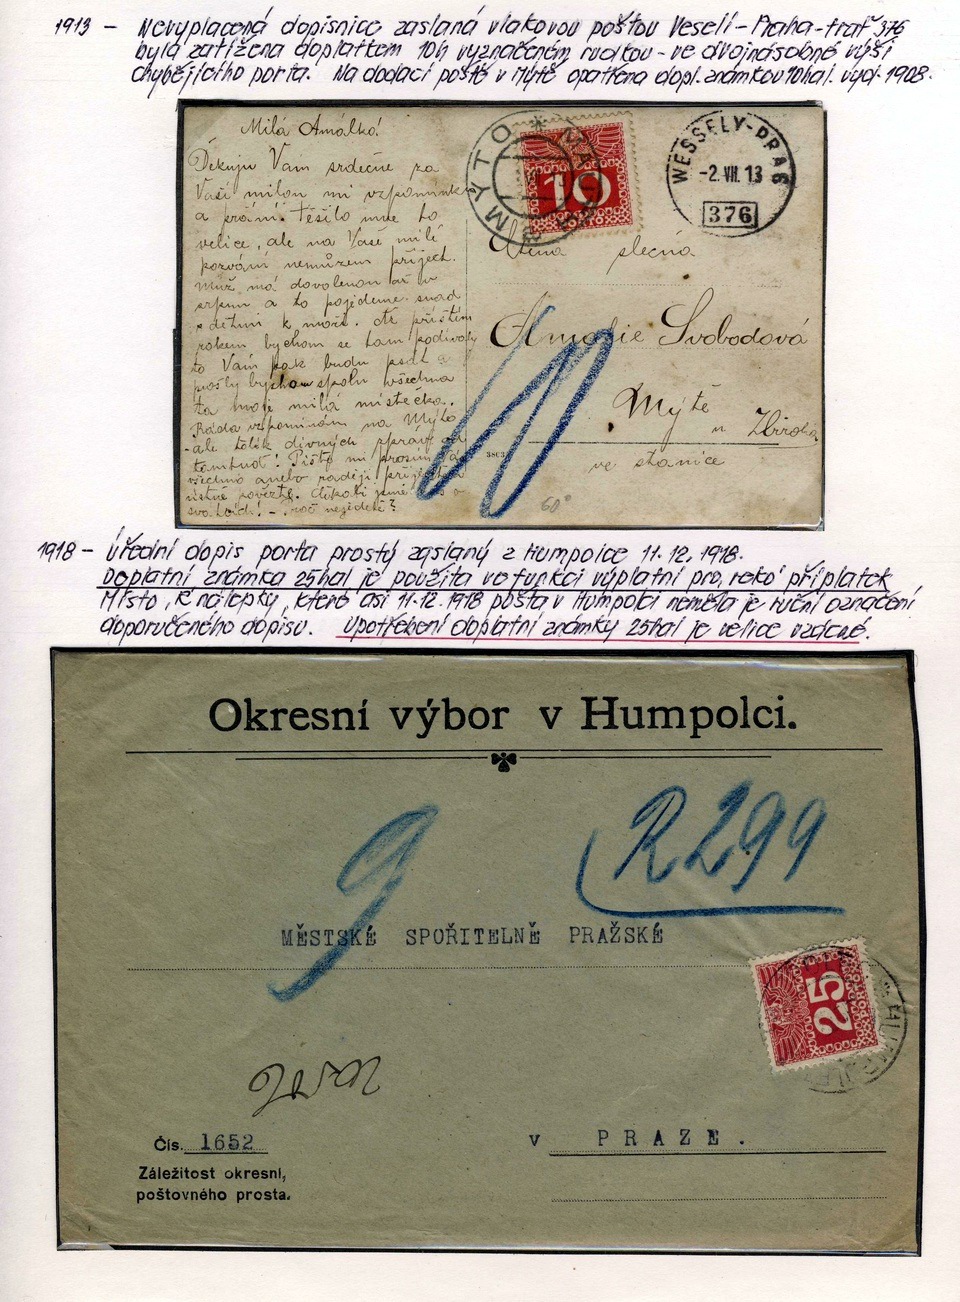 1913 - Nevyplacená dopisnice zaslaná vlakovou poštou Veselí - Praha - trať 376
byla zatížena doplattem 10h vyznačeném rudkou - ve dvojnásobné výši
chybějícího porta. Na dodací poště v Mýtě opatřena dopl. známkou 10hal. vyd. 1908.
Milá Amálko!
Děkuju Vám srdečně za
Vaši milou mi vzpomínku
a přání. Těšilo mne to
velice, ale na Vaše milé
pozvání nemůžem přijeti.
Muž má dovolenou až v
srpnu a to pojedeme snad
s dětmi k moři. Až příštím
rokem bychom se tam podívaly
to Vám pak budu psát a
prošly bychom spolu všechna
ta moje milá místečka.
Ráda vzpomínám na Mýto
ale tolik divných zpráv od
tamtud! Pište mi prosím
všechno anebo raději přijeďte a
ústně povězte.
10
MÝTO
WESSELY-PRAG
-2.VII.13
376
slečna
Amalie Svobodová
Mýtě
u Zbiroha
ve stanice
10
3803
60°
1918 - Úřední dopis porta prostý zaslaný z Humpolce 11.12.1918.
Doplatní známka 25hal je použita ve funkci výplatní pro, reko příplatek
Místo, R nálepky, které asi 11.12.1918 pošta v Humpolci neměla je ruční označení
doporučeného dopisu. Upotřebení doplatní známky 25hal je velice vzácné.
Okresní výbor v Humpolci.
R299
9
MĚSTSKÉ SPOŘITELNĚ PRAŽSKÉ
25
PORTO
Čís. 1652
v PRAZE.
Záležitost okresní,
poštovného prosta.